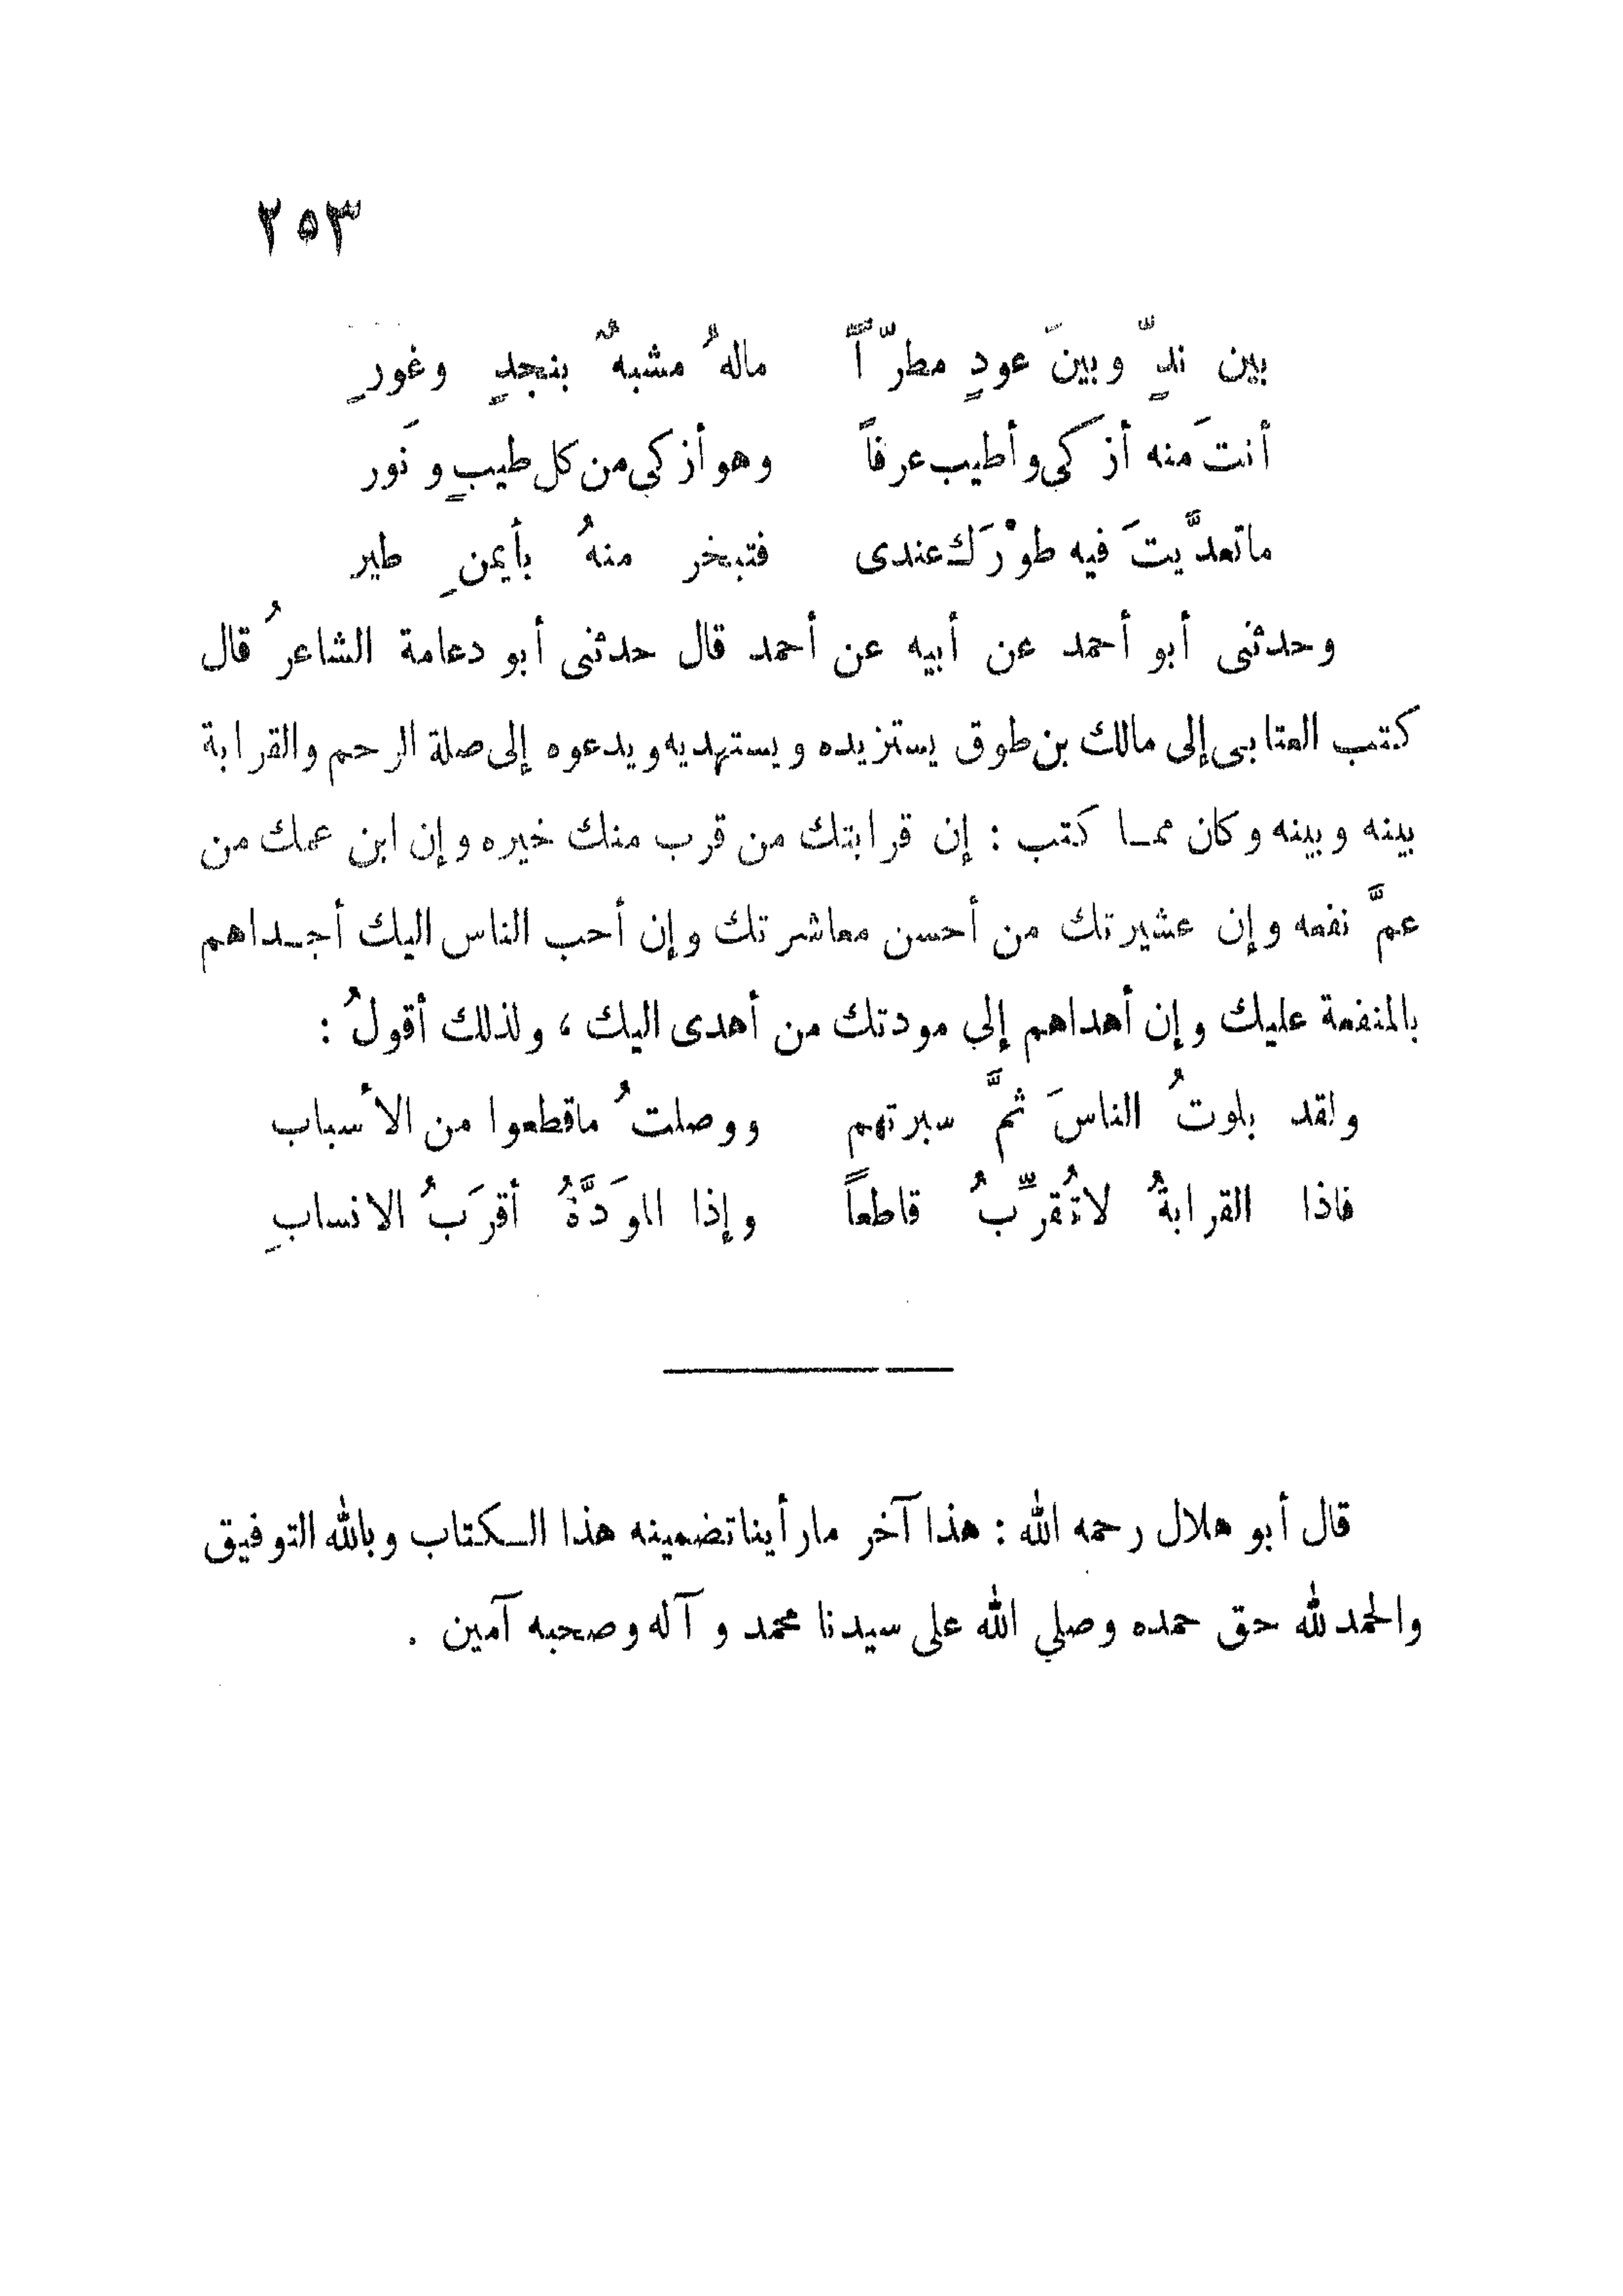 ٢٥٣
بين ندٍّ وبينَ عودٍ مطرّ اً ماله ُ مشبهٌ بنجدٍ وغورِ
أنتَ منه أزكى وأطيب عرفاً وهو أزكى من كل طيبٍ ونَور
ماتعدَّيتَ فيه طوْرَك عندى فتبخر منهُ بأيمنِ طير
وحدثنى أبو أحمد عن أبيه عن أحمد قال حدثنى أبو دعامة الشاعرُ قال
كتب العتابى إلى مالك بن طوق يستزيده ويستهديه ويدعوه إلى صلة الرحم والقرابة
بينه وبينه وكان ممـا كتب : إن قرابتك من قرب منك خيره وإن ابن عمك من
عمَّ نفعه وإن عشيرتك من أحسن معاشرتك وإن أحب الناس اليك أجـداهم
بالمنفعة عليك وإن أهداهم إلي مودتك من أهدى اليك ، ولذلك أقولُ :
ولقد بلوتُ الناسَ ثمَّ سبرتهم ووصلتُ ماقطعوا من الأسباب
فاذا القرابةُ لاتُقرِّبُ قاطعاً وإذا الموَدَّةُ أقرَبُ الانسابِ
قال أبو هلال رحمه الله : هذا آخر مارأينا تضمينه هذا الـكتاب وبالله التوفيق
والحمد لله حق حمده وصلي الله على سيدنا محمد وآله وصحبه آمين .